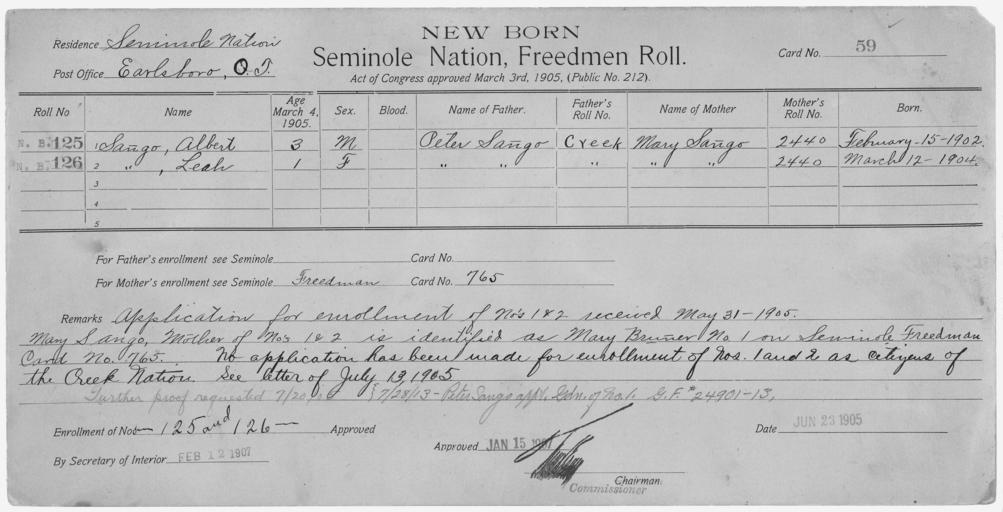 NEW BORN
Seminole Nation, Freedmen Roll.
Act of Congress approved March 3rd, 1905, (Public No. 212).
Residence Seminole Nation
Post Office Earlsboro, O.T.
Card No. 59
Roll No Name Age March 4, 1905. Sex. Blood. Name of Father. Father's Roll No. Name of Mother Mother's Roll No. Born.
N. B. 125 1 Sango, Albert 3 M Peter Sango Creek Mary Sango 2440 February-15-1902.
N. B. 126 2 " , Leah 1 F " " " " " 2440 March 12-1904.
3
4
5
For Father's enrollment see Seminole Card No.
For Mother's enrollment see Seminole Freedman Card No. 765
Remarks Application for enrollment of No's 1&2 received May 31-1905.
Mary Sango, Mother of Nos 1&2 is identified as Mary Bruner No 1 on Seminole Freedman
Card No. 765. No application has been made for enrollment of Nos. 1 and 2 as citizens of
the Creek Nation. See letter of July 13, 1905
Further proof requested 7/20/06 7/28/13-Peter Sango appt. Gdn. of G.F.#24901-13,
Enrollment of Nos — 125 and 126 — Approved
By Secretary of Interior. FEB 12 1907
Approved JAN 15 1907
Chairman.
Commissioner
Date JUN 23 1905